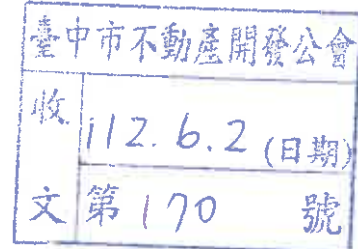 臺中市不動產開發公會
收 112.6.2(日期)
文 第170號